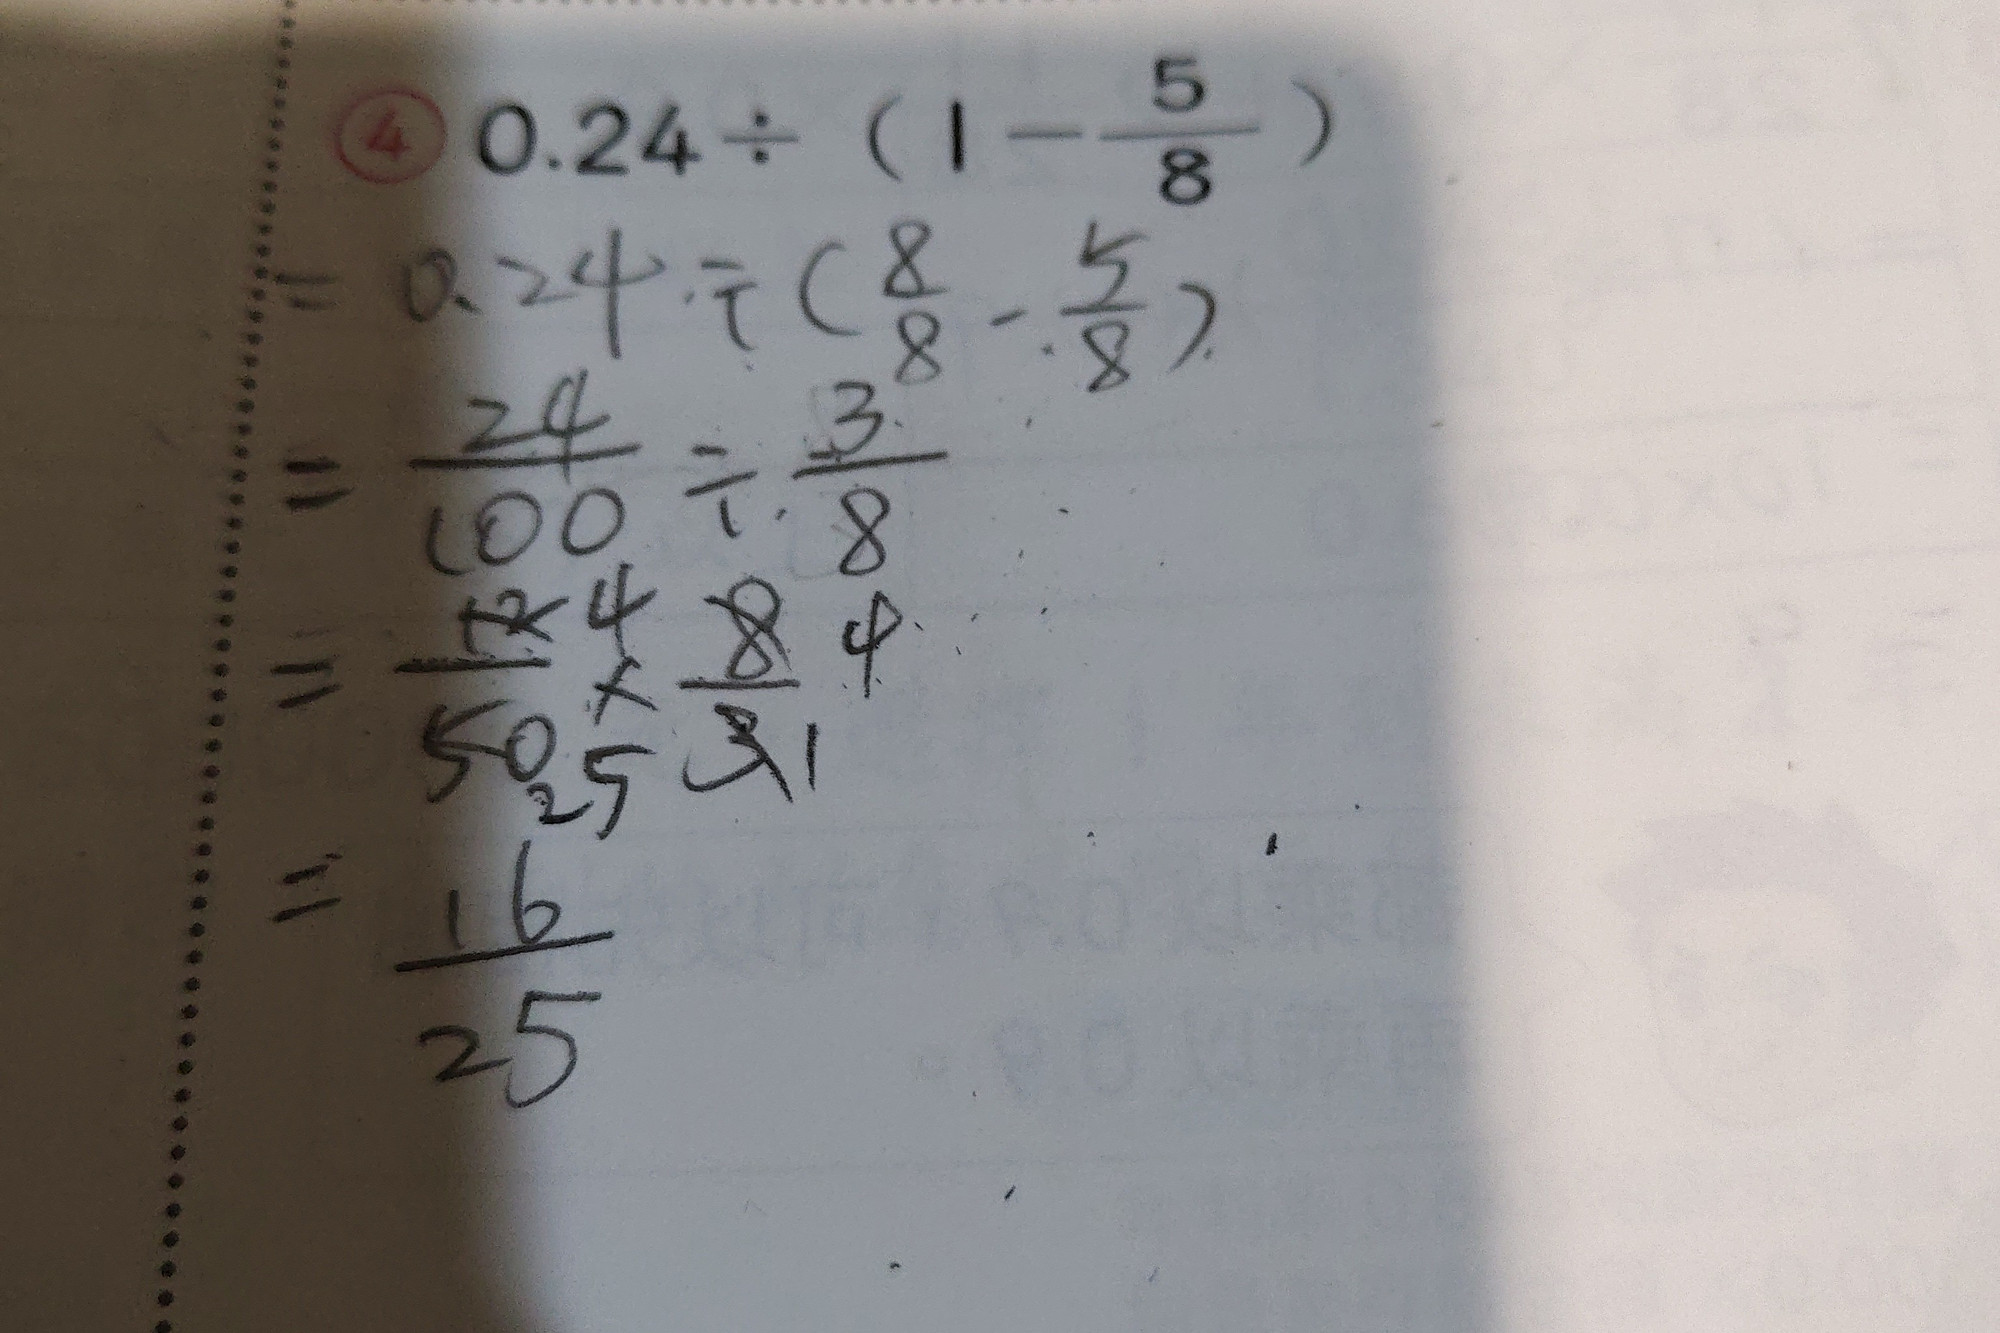 ④ 0.24 ÷ ( 1 - 5/8 )
= 0.24 ÷ ( 8/8 - 5/8 )
= 24/100 ÷ 3/8
= 12/50 × 8/3 4 4 25 1
= 16/25